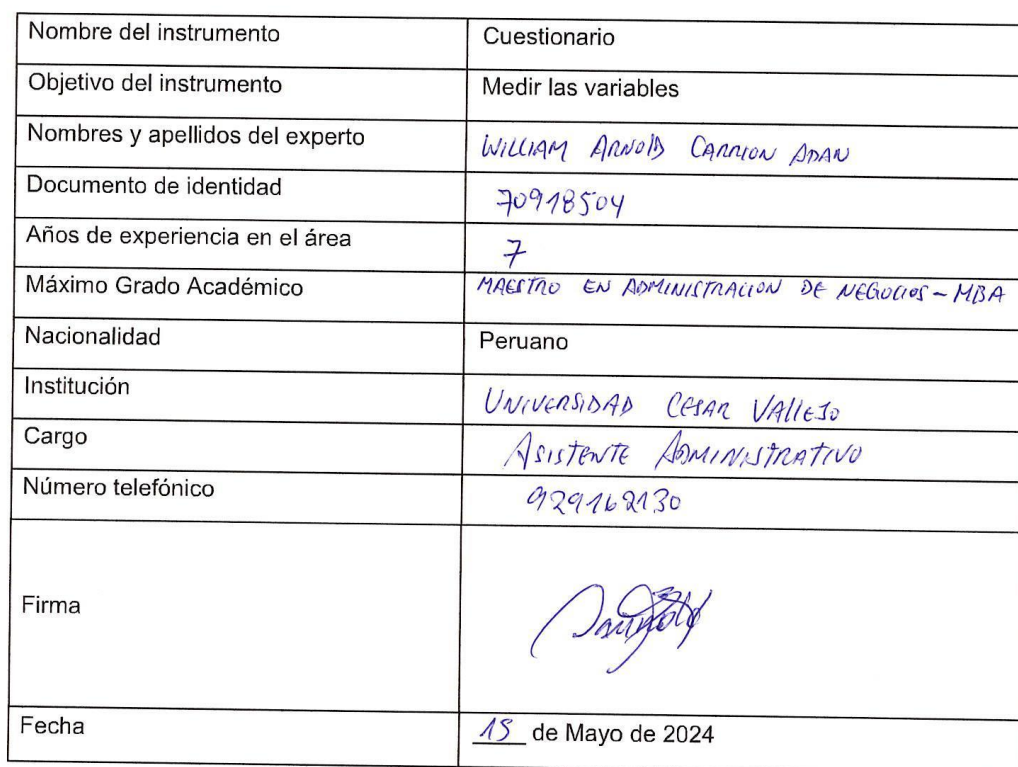 Nombre del instrumento Cuestionario
Objetivo del instrumento Medir las variables
Nombres y apellidos del experto WILLIAM ARNOLD CARRION ADAN
Documento de identidad 70918504
Años de experiencia en el área 7
Máximo Grado Académico MAESTRO EN ADMINISTRACION DE NEGOCIOS - MBA
Nacionalidad Peruano
Institución UNIVERSIDAD CESAR VALLEJO
Cargo ASISTENTE ADMINISTRATIVO
Número telefónico 929162130
Firma
Fecha 15 de Mayo de 2024